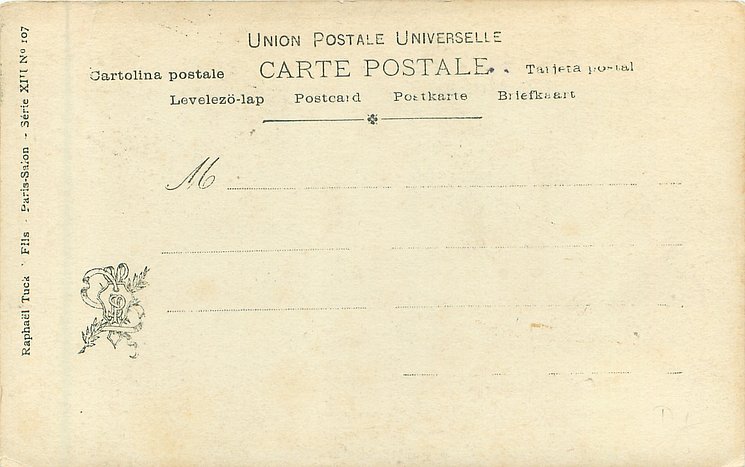 UNION POSTALE UNIVERSELLE
Cartolina postale CARTE POSTALE Tarjeta postal
Levelezö-lap Postcard Postkarte Briefkaart
M
Raphaël Tuck Fils - Paris-Salon - Série XIII Nº 107